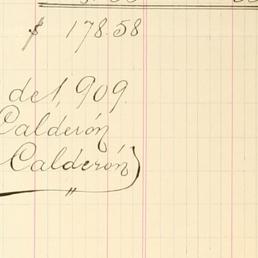 $ 178.58
de 1,909.
Calderón
Calderón)
"